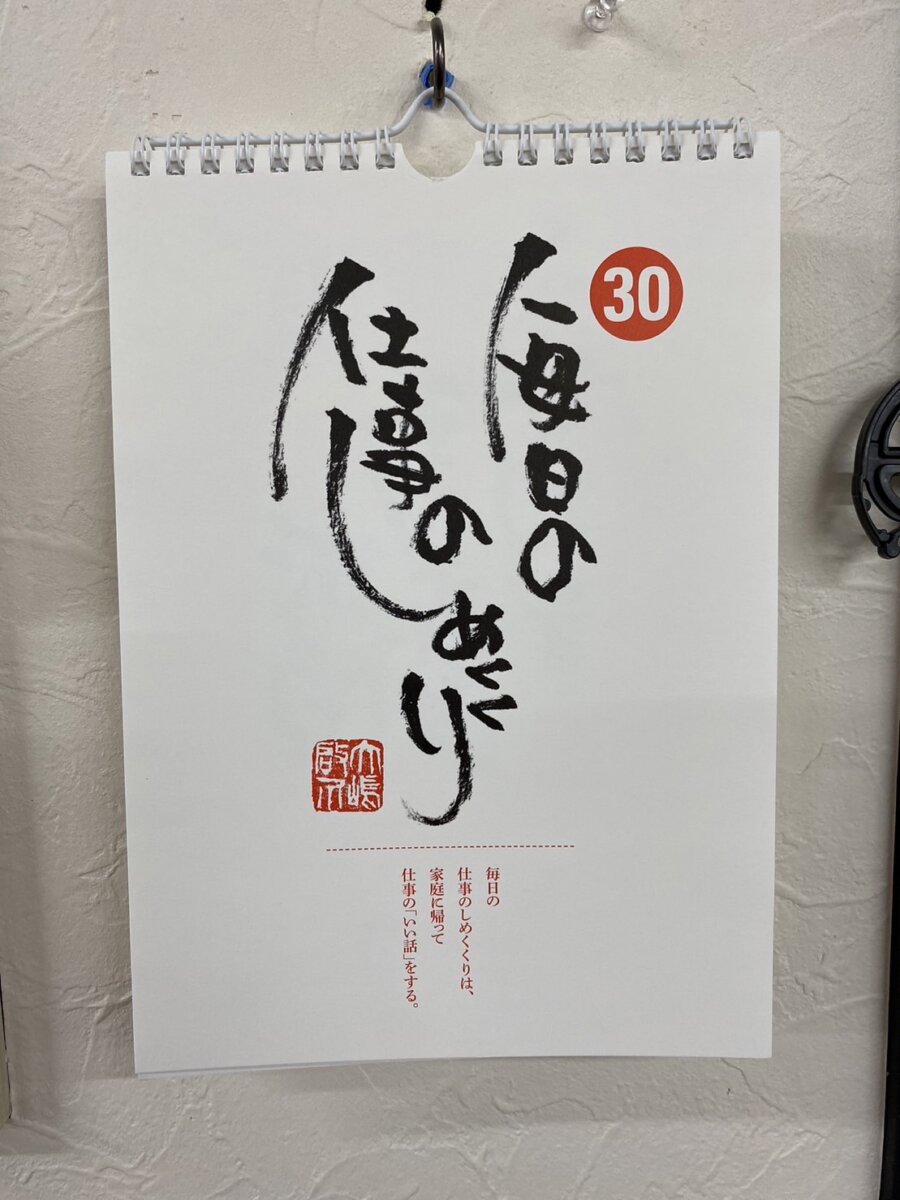 30
毎日の
仕事の
しめくくり
大嶋
啓介
毎日の
仕事のしめくくりは、
家庭に帰って
仕事の「いい話」をする。